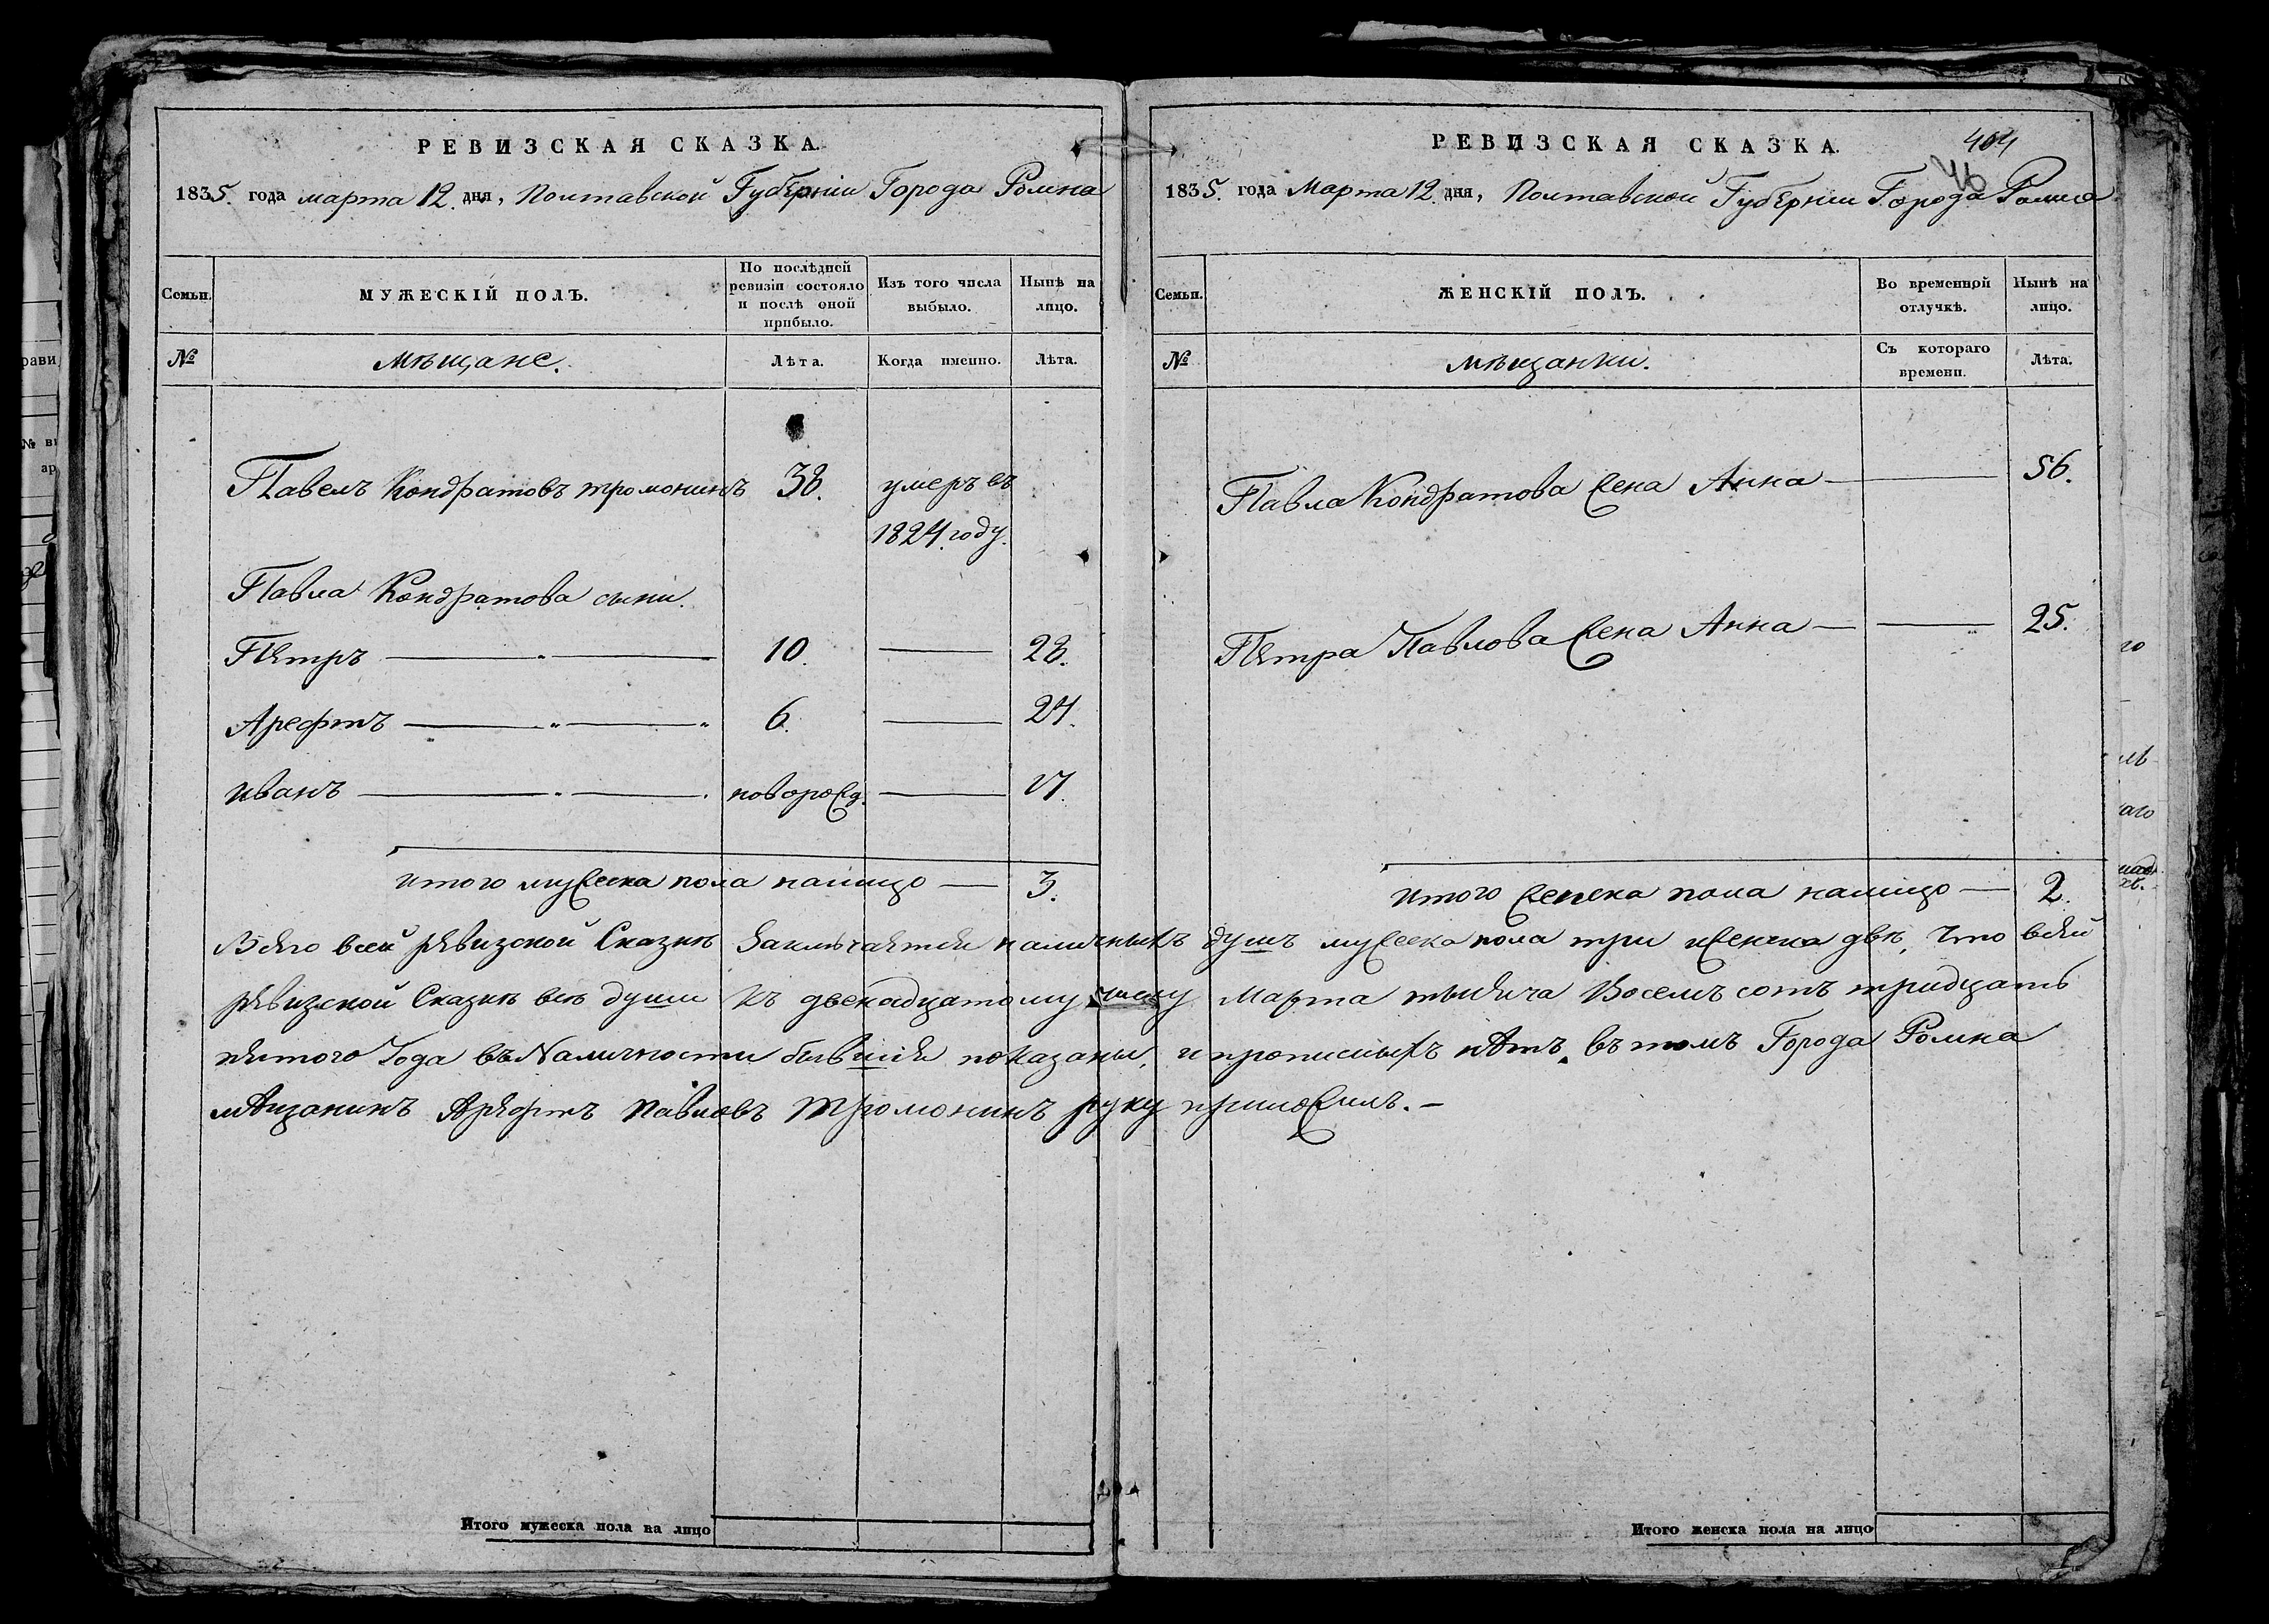 РЕВИЗСКАЯ СКАЗКА.
1835. года марта 12. дня, Полтавской Губерніи Города Ромна
Семьи.
МУЖЕСКІЙ ПОЛЪ.
По послѣдней ревизіи состояло и послѣ оной прибыло.
Изъ того числа выбыло.
Нынѣ на лицо.
№
мѣщане.
Лѣта.
Когда именно.
Лѣта.
Павелъ Кондратовъ тромонинъ 38. умеръ въ
1824. году.
Павла Кондратова сыни.
Петръ 10. 28.
Арефтъ 6. 24.
иванъ новорожд. 17.
итого мужеска пола налицо — 3.
РЕВИЗСКАЯ СКАЗКА.
404
46
1835. года Марта 12. дня, Полтавской Губерніи Города Ромна
Семьи.
ЖЕНСКІЙ ПОЛЪ.
Во временной отлучкѣ.
Нынѣ на лицо.
№
мѣщанки.
Съ котораго времени.
Лѣта.
Павла Кондратова жена Анна — 56.
Петра Павлова жена Анна — 25.
итого женска пола налицо — 2.
Всего всей ревизской Сказкѣ заключается наличныхъ душъ мужеска пола три иженска двѣ, Что всей
ревизской Сказкѣ всѣ души къ двенадцатому числу Марта тысяча Восемъ сотъ тридцать
пятого Года въ Наличности бывшія показаны, и прописныхъ нѣтъ. въ томъ Города Ромна
мѣщанинъ Арефтъ Павловъ Тромонинъ руку приложилъ. —
Итого мужеска пола на лицо
Итого женска пола на лицо